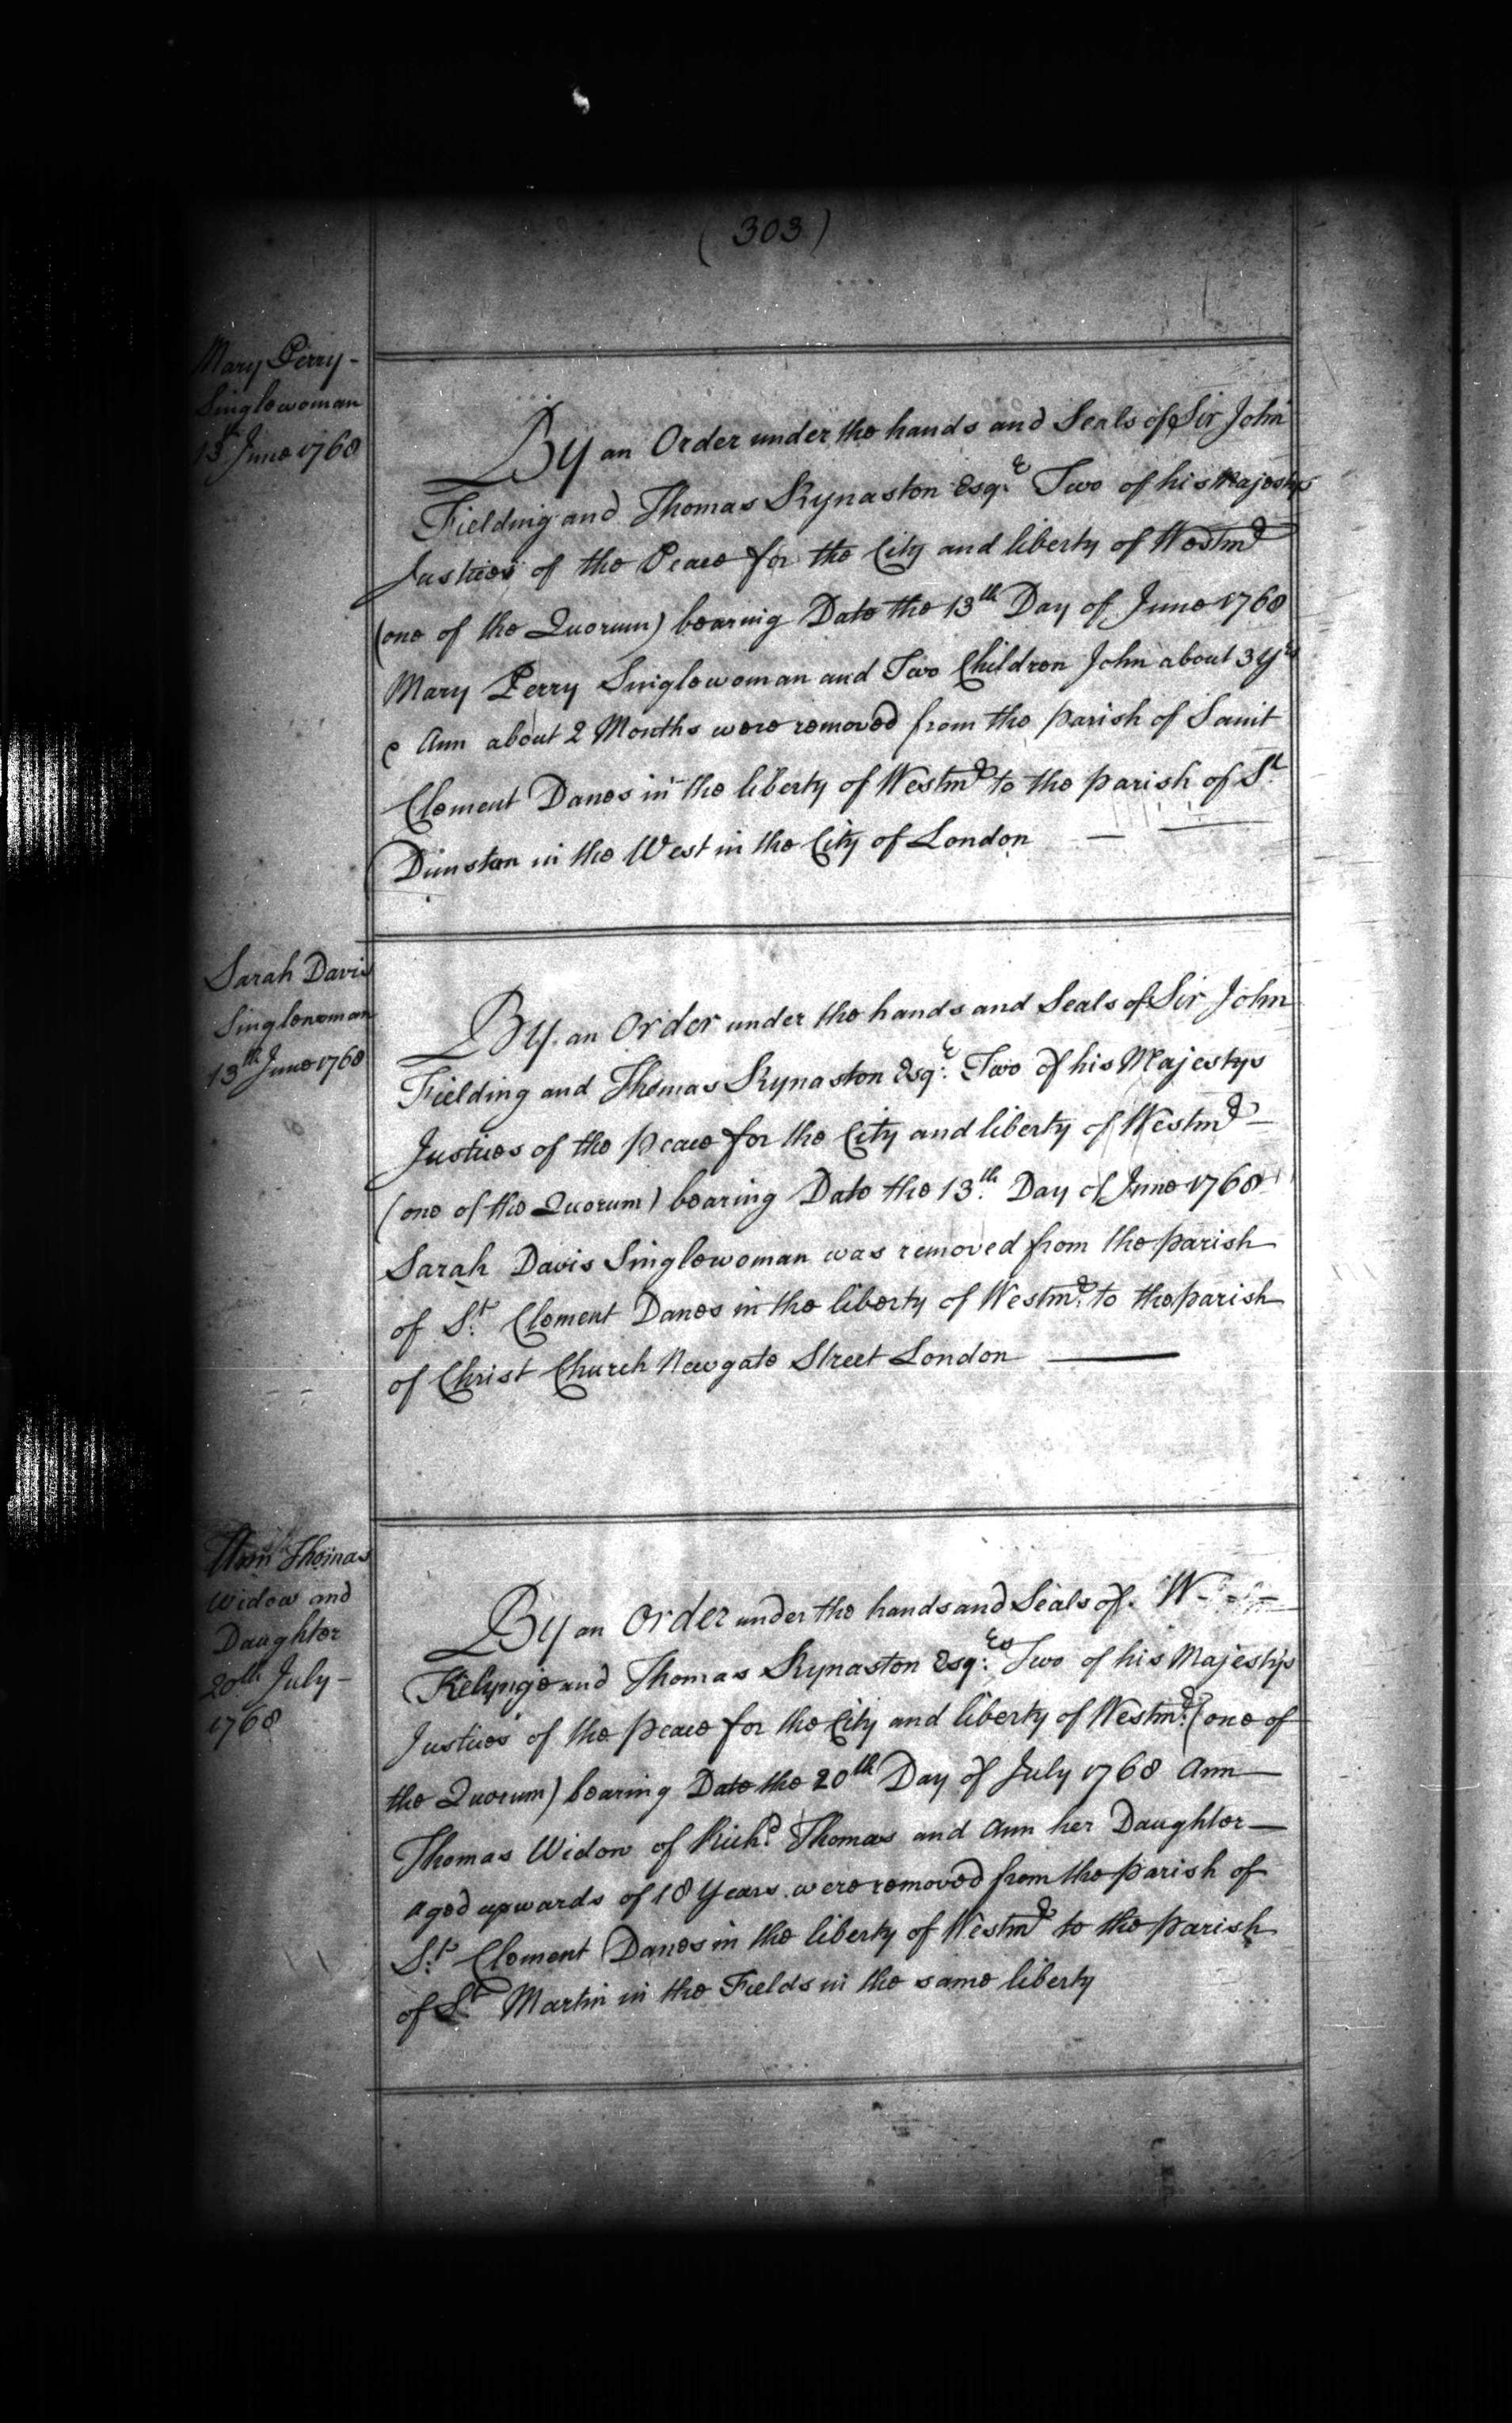 (303)
Mary Perry -
Singlewoman
13th June 1768
By an Order under the hands and Seals of Sir John
Fielding and Thomas Kynaston Esqr. Two of his Majestys
Justices of the Peace for the City and liberty of Westmr
(one of the Quorum) bearing Date the 13th Day of June 1768
Mary Perry Singlewoman and Two Children John about 3 Yrs
& Ann about 2 Months were removed from the parish of Saint
Clement Danes in the liberty of Westmr to the parish of St.
Dunstan in the West in the City of London
Sarah Davis
Singlewoman
13th June 1768
By an Order under the hands and Seals of Sir John
Fielding and Thomas Kynaston Esqr. Two of his Majestys
Justices of the peace for the City and liberty of Westmr -
(one of the Quorum) bearing Date the 13th. Day of June 1768
Sarah Davis Singlewoman was removed from the parish
of St. Clement Danes in the liberty of Westmr. to the parish
of Christ Church Newgate Street London
Ann Thomas
Widow and
Daughter
20th July -
1768
By an Order under the hands and Seals of
Kelynge and Thomas Kynaston Esqrs. Two of his Majestys
Justices of the peace for the City and liberty of Westmr. (one of
the Quorum) bearing Date the 20th Day of July 1768 Ann
Thomas Widow of Richd. Thomas and Ann her Daughter
aged upwards of 18 Years were removed from the parish of
St. Clement Danes in the liberty of Westmr to the parish
of St. Martin in the Fields in the same liberty